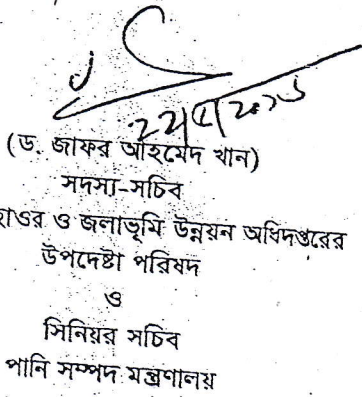 ২২/৫/২০১৬
(ড. জাফর আহমেদ খান)
সদস্য-সচিব
হাওর ও জলাভূমি উন্নয়ন অধিদপ্তরের
উপদেষ্টা পরিষদ
ও
সিনিয়র সচিব
পানি সম্পদ মন্ত্রণালয়